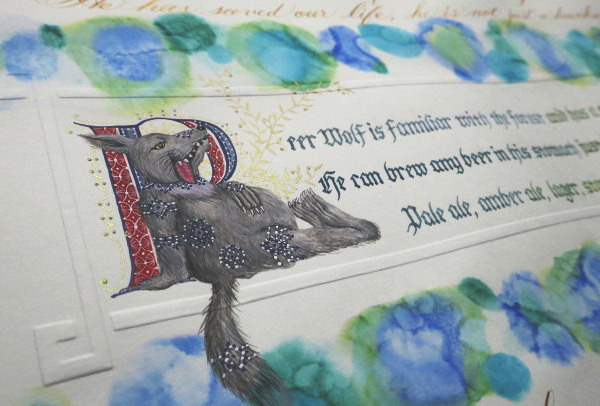 He has our life, he is not just a
Beer Wolf is familiar with the and
He can brew any beer in his stomach
Pale ale, amber ale, lager,